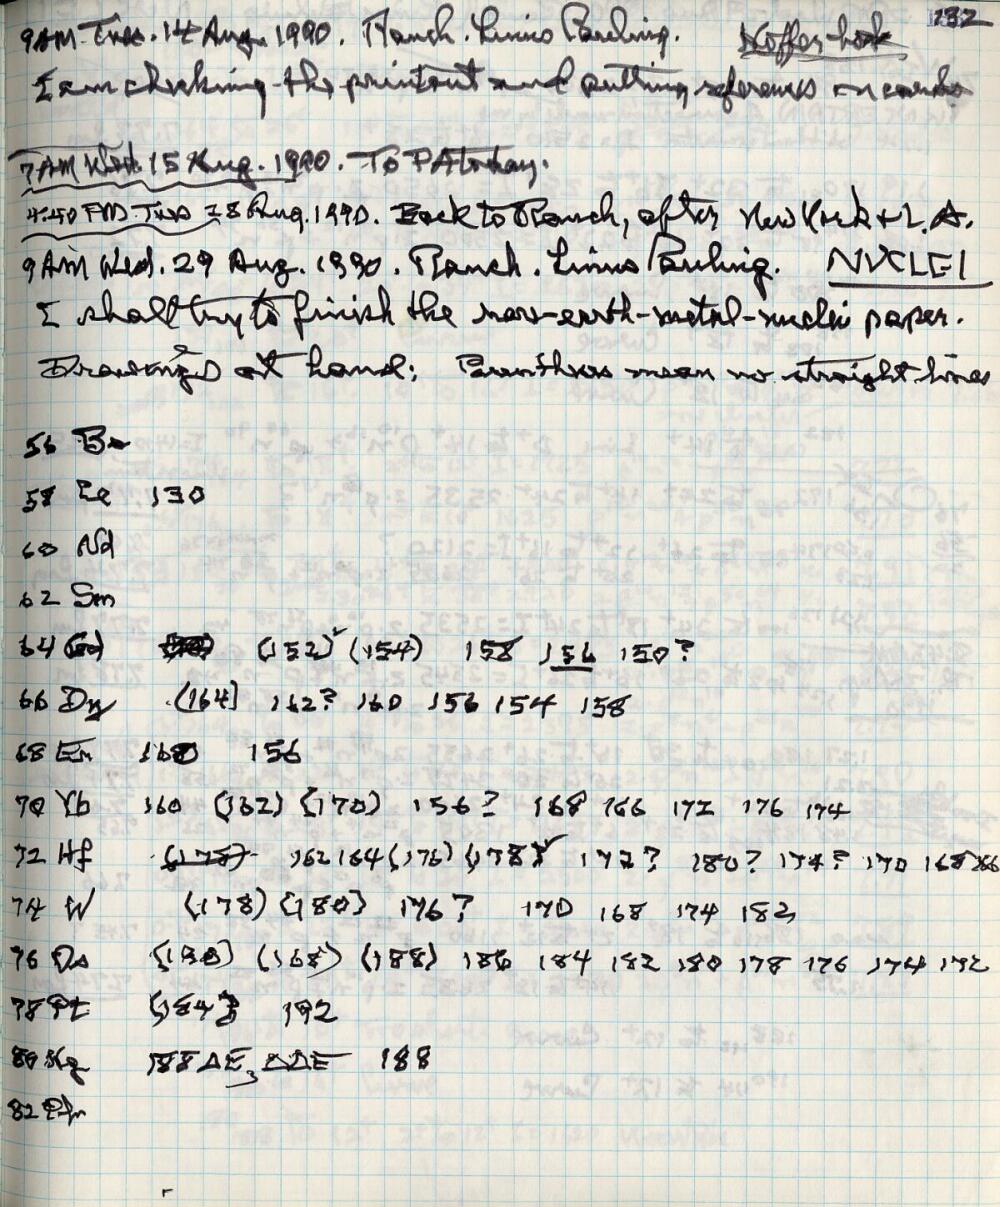 132
9 AM Tues. 14 Aug. 1990. Ranch. Linus Pauling. Hoffer book
I am checking the printout and putting references on cards
7 AM Wed. 15 Aug. 1990. To PA today.
4:40 PM Tues 28 Aug. 1990. Back to Ranch, after New York + L.A.
9 AM Wed. 29 Aug. 1990. Ranch. Linus Pauling. NUCLEI
I shall try to finish the rare-earth-metal-nuclei paper.
Drawings at hand; Parentheses mean no straight lines
56 Ba
58 Ce 130
60 Nd
62 Sm
64 Gd (152) (154) 158 156 150?
66 Dy (164] 162? 160 156 154 158
68 Er 160 156
70 Yb 160 (162) (170) 156? 168 166 172 176 174
72 Hf (178) 162 164 (176) (178) 172? 180? 174? 170 168 166
74 W (178) (180) 176? 170 168 174 182
76 Os (168) (188) 186 184 182 180 178 176 174 172
78 Pt (184) 192
80 Hg 188 ΔE, ΔΔE 188
82 Pb